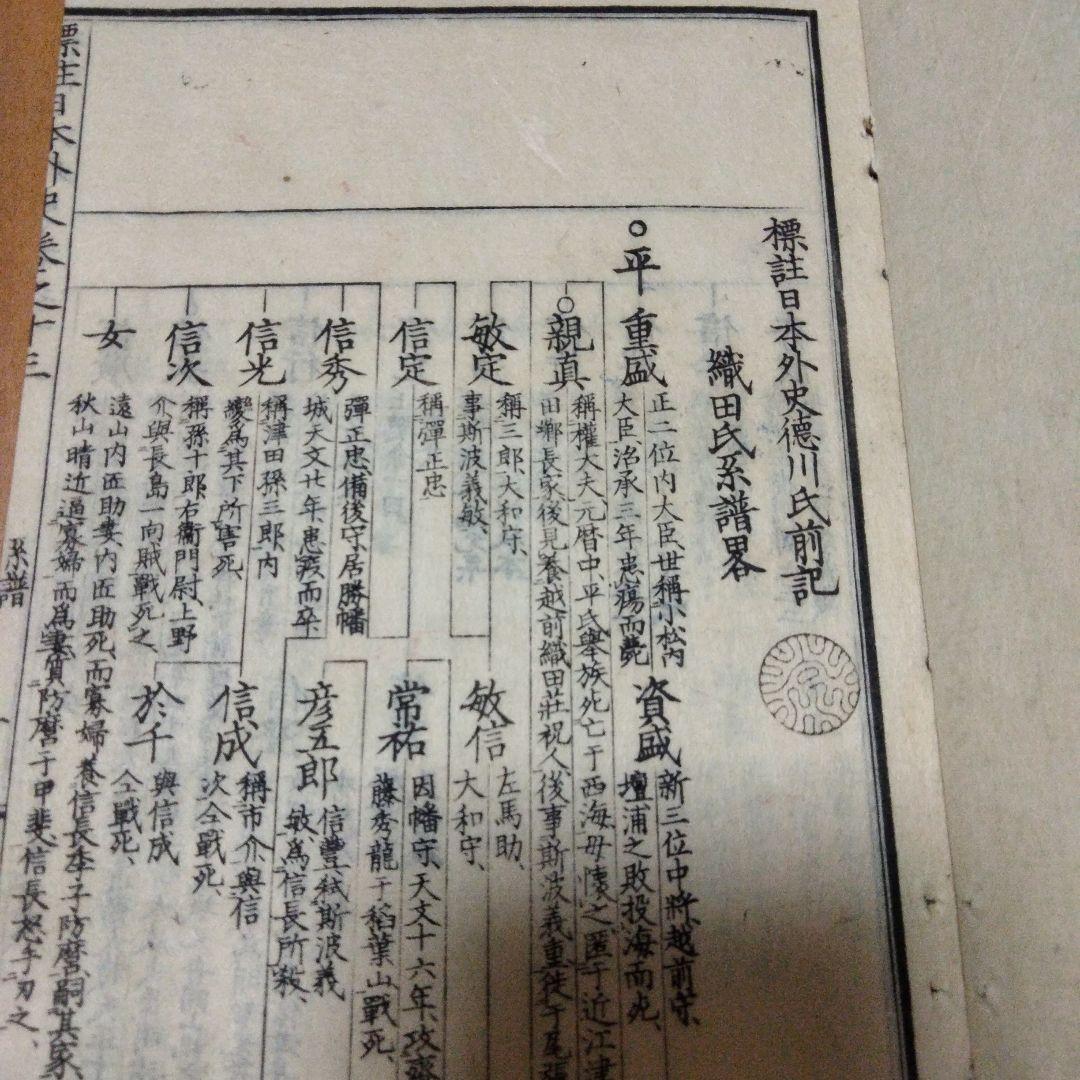 標註日本外史德川氏前記
織田氏系譜畧
平重盛
正二位内大臣、世稱小松内
大臣、治承三年患瘍而薨
資盛
新三位中將、越前守、
壇浦之敗投海而死、
親真
稱權大夫、元暦中、平氏擧族死亡于西海、母懐之匿于近江津
田鄕長家、後見養越前織田莊祝人、後事斯波義重、徙于尾張
敏定
稱三郎、大和守、
事斯波義敏、
敏信
左馬助、
大和守、
信定
稱彈正忠
常祐
因幡守、天文十六年、攻齋
藤秀龍于稻葉山戰死、
信秀
彈正忠、備後守、居勝幡
城、天文廿年、患疫而卒
彦五郎
信豐、弑斯波義
敏、為信長所殺、
信光
稱津田孫三郎、内
變為其下所害死、
信成
稱市介、與信
次仝戰死、
信次
稱孫十郎、右衞門尉、上野
介、與長島一向賊戰死之
於千
與信成
仝戰死、
女
遠山内匠助妻、内匠助死、而寡婦、養信長季子防麿嗣其家、
秋山晴近逼寡婦而為妻、質防麿于甲斐、信長怒手刃之、
標註日本外史卷之十三
系譜